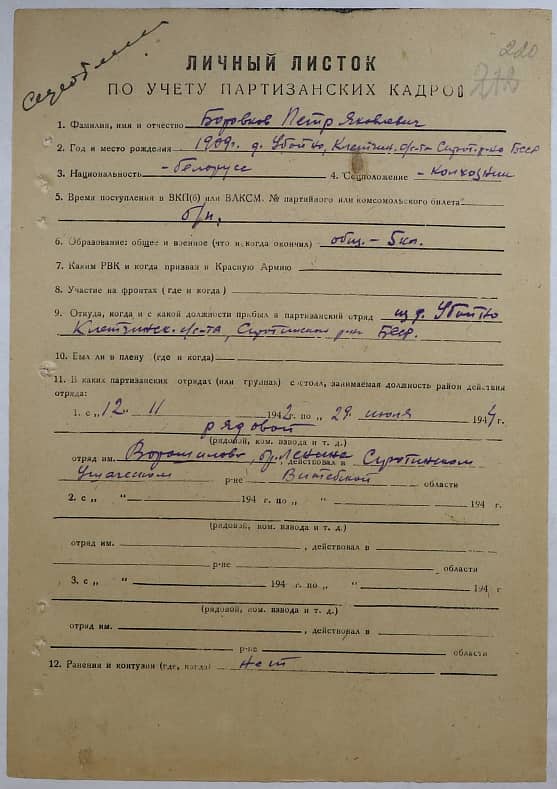 220
ЛИЧНЫЙ ЛИСТОК
ПО УЧЕТУ ПАРТИЗАНСКИХ КАДРОВ
1. Фамилия, имя и отчество Боровков Петр Яковлевич
2. Год и место рождения 1909г. д. Убойно, Клетчин. с/сета Сирот. р-на БССР
3. Национальность - белорусс 4. Соцположение - колхозник
5. Время поступления в ВКП(б) или ВЛКСМ. № партийного или комсомольского билета
б/п.
6. Образование: общее и военное (что и когда окончил) общ. - 5 кл.
7. Каким РВК и когда призван в Красную Армию
8. Участие на фронтах (где и когда)
9. Откуда, когда и с какой должности прибыл в партизанский отряд из д. Убойно
с/сета, Сиротинского р-на БССР.
10. Был ли в плену (где и когда)
11. В каких партизанских отрядах (или группах) состоял, занимаемая должность район действия
отряда:
1. с „12" 11 1942г. по „29. июля 1944г.
рядовой
(рядовой, ком. взвода и т. д.)
отряд им. Ворошилова, бр. Ленина, действовал в Сиротинском
Ушачском р-не Витебской области
2. с „ " 194 г. по „ " 194 г.
(рядовой, ком. взвода и т. д.)
отряд им. , действовал в
р-не области
3. с „ " 194 г. по „ " 194 г
(рядовой, ком. взвода и т. д.)
отряд им. , действовал в
р-не области
12. Ранения и контузии (где, когда) нет